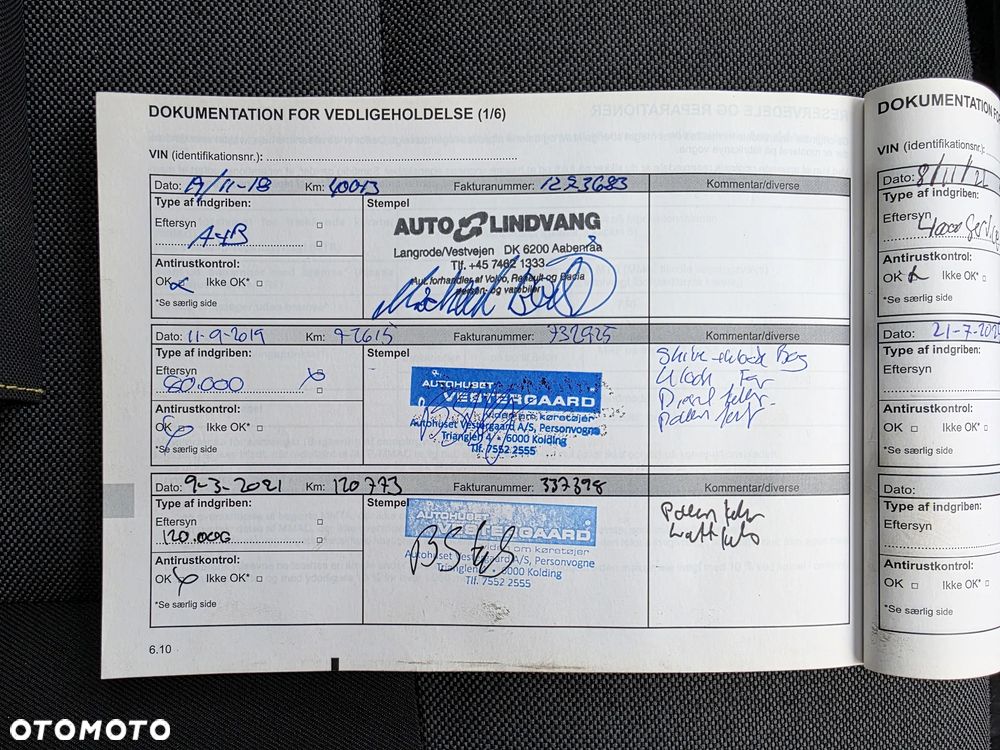 DOKUMENTATION FOR VEDLIGEHOLDELSE (1/6)
VIN (identifikationsnr.):
Dato: 19/11-18 Km: 40013 Fakturanummer: 1223683 Kommentar/diverse
Type af indgriben:
Stempel
Eftersyn
A+B
AUTO LINDVANG
Langrode/Vestvejen DK 6200 Aabenraa
Tlf. +45 7462 1333
Aut. forhandler af Volvo, Renault og Dacia
person- og varebiler
Antirustkontrol:
OK Ikke OK*
*Se særlig side
Dato: 11-9-2019 Km: 77615 Fakturanummer: 732925 Kommentar/diverse
Type af indgriben:
Stempel
Eftersyn
80.000
AUTOHUSET
VESTERGAARD
viden om køretøjer
Autohuset Vestergaard A/S, Personvogne
Trianglen 4 - 6000 Kolding
Tlf. 7552 2555
Antirustkontrol:
OK Ikke OK*
*Se særlig side
Dato: 9-3-2021 Km: 120773 Fakturanummer: 337398 Kommentar/diverse
Type af indgriben:
Stempel
Eftersyn
120.000
AUTOHUSET
VESTERGAARD
viden om køretøjer
Autohuset Vestergaard A/S, Personvogne
Trianglen 6000 Kolding
Tlf. 7552 2555
Antirustkontrol:
OK Ikke OK*
*Se særlig side
6.10
DOKUMENTATION
VIN (identifikationsnr.):
Dato: 8/11/
Type af indgriben:
Eftersyn
Antirustkontrol:
OK Ikke OK*
*Se særlig side
Dato: 21-7-
Type af indgriben:
Eftersyn
Antirustkontrol:
OK Ikke OK*
*Se særlig side
Dato:
Type af indgriben:
Eftersyn
Antirustkontrol:
OK Ikke OK*
*Se særlig side
OTOMOTO